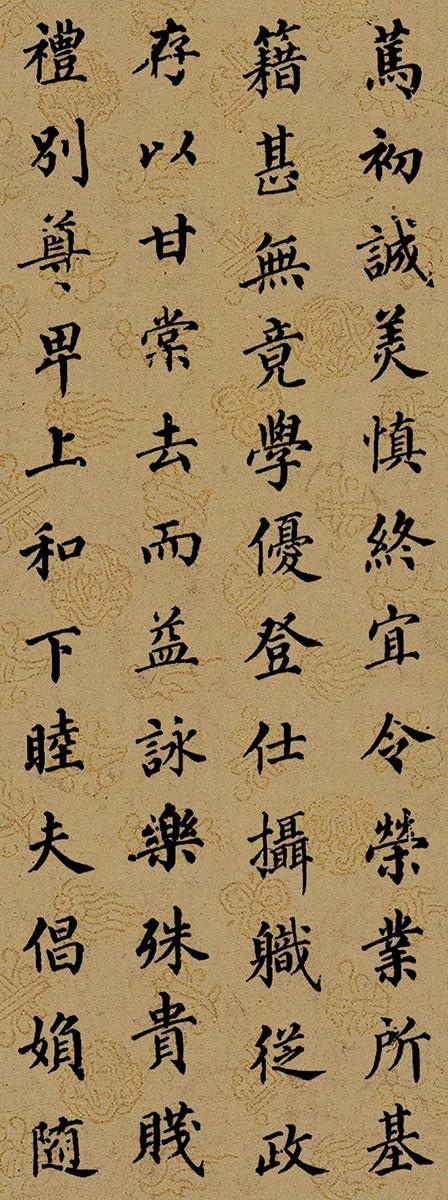 篤初誠美慎終宜令榮業所基
籍甚無竟學優登仕攝職從政
存以甘棠去而益詠樂殊貴賤
禮別尊卑上和下睦夫倡婦隨